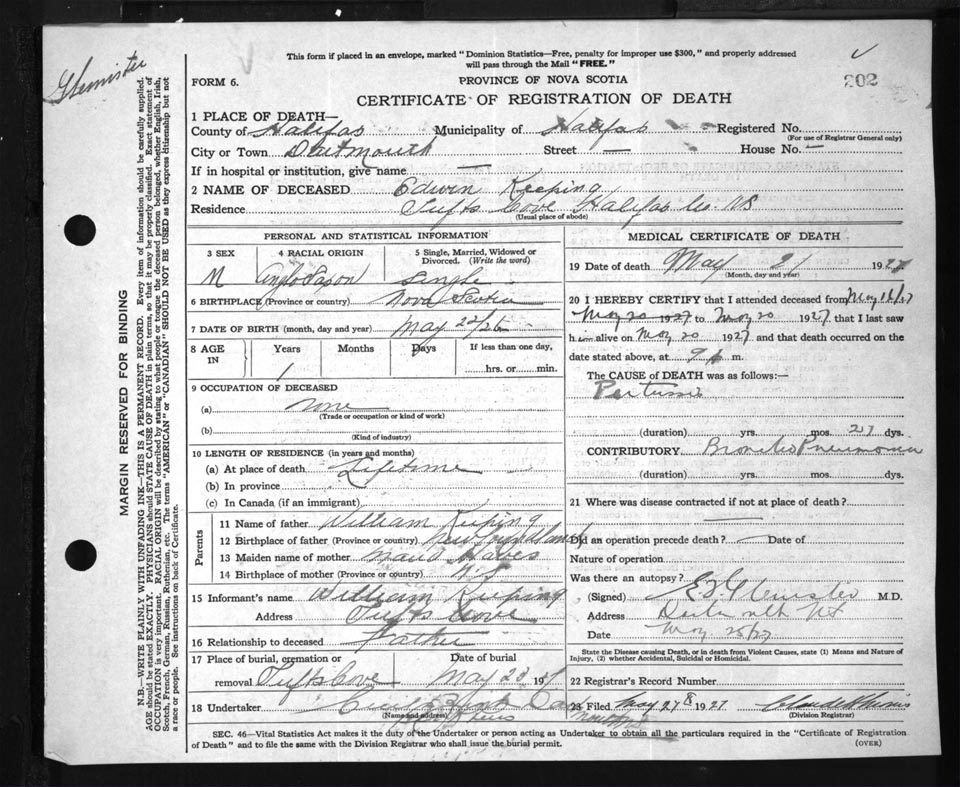 This form if placed in an envelope, marked "Dominion Statistics—Free, penalty for improper use $300," and properly addressed
will pass through the Mail "FREE."
Glenister
202
FORM 6. PROVINCE OF NOVA SCOTIA
CERTIFICATE OF REGISTRATION OF DEATH
1 PLACE OF DEATH—
County of Halifax Municipality of Halifax Registered No.
(For use of Registrar General only)
City or Town Dartmouth Street — House No. —
If in hospital or institution, give name —
2 NAME OF DECEASED Edwin Keeping
Residence Tufts Cove Halifax Co. NS
(Usual place of abode)
PERSONAL AND STATISTICAL INFORMATION
3 SEX 4 RACIAL ORIGIN 5 Single, Married, Widowed or
Divorced. (Write the word)
M Anglo Saxon Single
6 BIRTHPLACE (Province or country) Nova Scotia
7 DATE OF BIRTH (month, day and year) May 22/26
8 AGE IN Years Months Days If less than one day,
1 hrs. or min.
9 OCCUPATION OF DECEASED
(a) none
(Trade or occupation or kind of work)
(b)
(Kind of industry)
10 LENGTH OF RESIDENCE (in years and months)
(a) At place of death Lifetime
(b) In province
(c) In Canada (if an immigrant)
Parents
11 Name of father William Keeping
12 Birthplace of father (Province or country) Newfoundland
13 Maiden name of mother Maud
14 Birthplace of mother (Province or country) N.S.
15 Informant's name William Keeping
Address Tufts Cove
16 Relationship to deceased Father
17 Place of burial, cremation or Date of burial
removal Tufts Cove May 23 1927
18 Undertaker
(Name and address)
MEDICAL CERTIFICATE OF DEATH
19 Date of death May 21 1927
(Month, day and year)
20 I HEREBY CERTIFY that I attended deceased from May 16/27
May 20 1927 to May 20 1927 that I last saw
h alive on May 20 1927 and that death occurred on the
date stated above, at 9 m.
The CAUSE of DEATH was as follows:—
Pertussis
(duration) yrs. mos. 21 dys.
CONTRIBUTORY Broncho Pneumonia
(duration) yrs. mos. dys.
21 Where was disease contracted if not at place of death?
Did an operation precede death? Date of
Nature of operation
Was there an autopsy?
(Signed) Glenister M.D.
Address Dartmouth NS
Date May 25/27
State the Disease causing Death, or in death from Violent Causes, state (1) Means and Nature of
Injury, (2) whether Accidental, Suicidal or Homicidal.
22 Registrar's Record Number
23 Filed May 27 1927
(Division Registrar)
SEC. 46—Vital Statistics Act makes it the duty of the Undertaker or person acting as Undertaker to obtain all the particulars required in the "Certificate of Registration
of Death" and to file the same with the Division Registrar who shall issue the burial permit. (OVER)
MARGIN RESERVED FOR BINDING
N.B.—WRITE PLAINLY WITH UNFADING INK—THIS IS A PERMANENT RECORD. Every item of information should be carefully supplied.
AGE should be stated EXACTLY. PHYSICIANS should STATE CAUSE OF DEATH in plain terms, so that it may be properly classified. Exact statement of
OCCUPATION is very important. RACIAL ORIGIN will be described by stating to what people or tongue the deceased person belonged, whether English, Irish,
Scotch, French, German, Russian, Ruthenian, etc. The terms "AMERICAN" or "CANADIAN" SHOULD NOT BE USED as they express citizenship but not
a race or people. See instructions on back of Certificate.